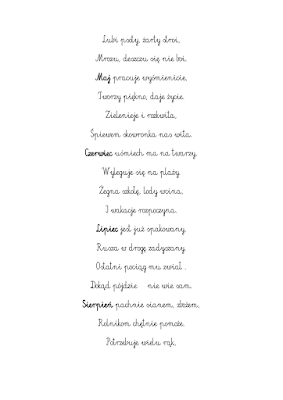 Lubi psoty, żarty stroi,
Mrozu, deszczu się nie boi.
Maj pracuje wyśmienicie,
Tworzy piękno, daje życie.
Zielenieje i rozkwita,
Śpiewem skowronka nas wita.
Czerwiec uśmiech ma na twarzy,
Wyleguje się na plaży.
Żegna szkołę, lody wcina,
I wakacje rozpoczyna.
Lipiec jest już opakowany.
Rusza w drogę zadyszany.
Ostatni pociąg mu zwiał.
Dokąd pójdzie nie wie sam.
Sierpień pachnie sianem, zbożem,
Rolnikom chętnie pomoże.
Potrzebuje wielu rąk,